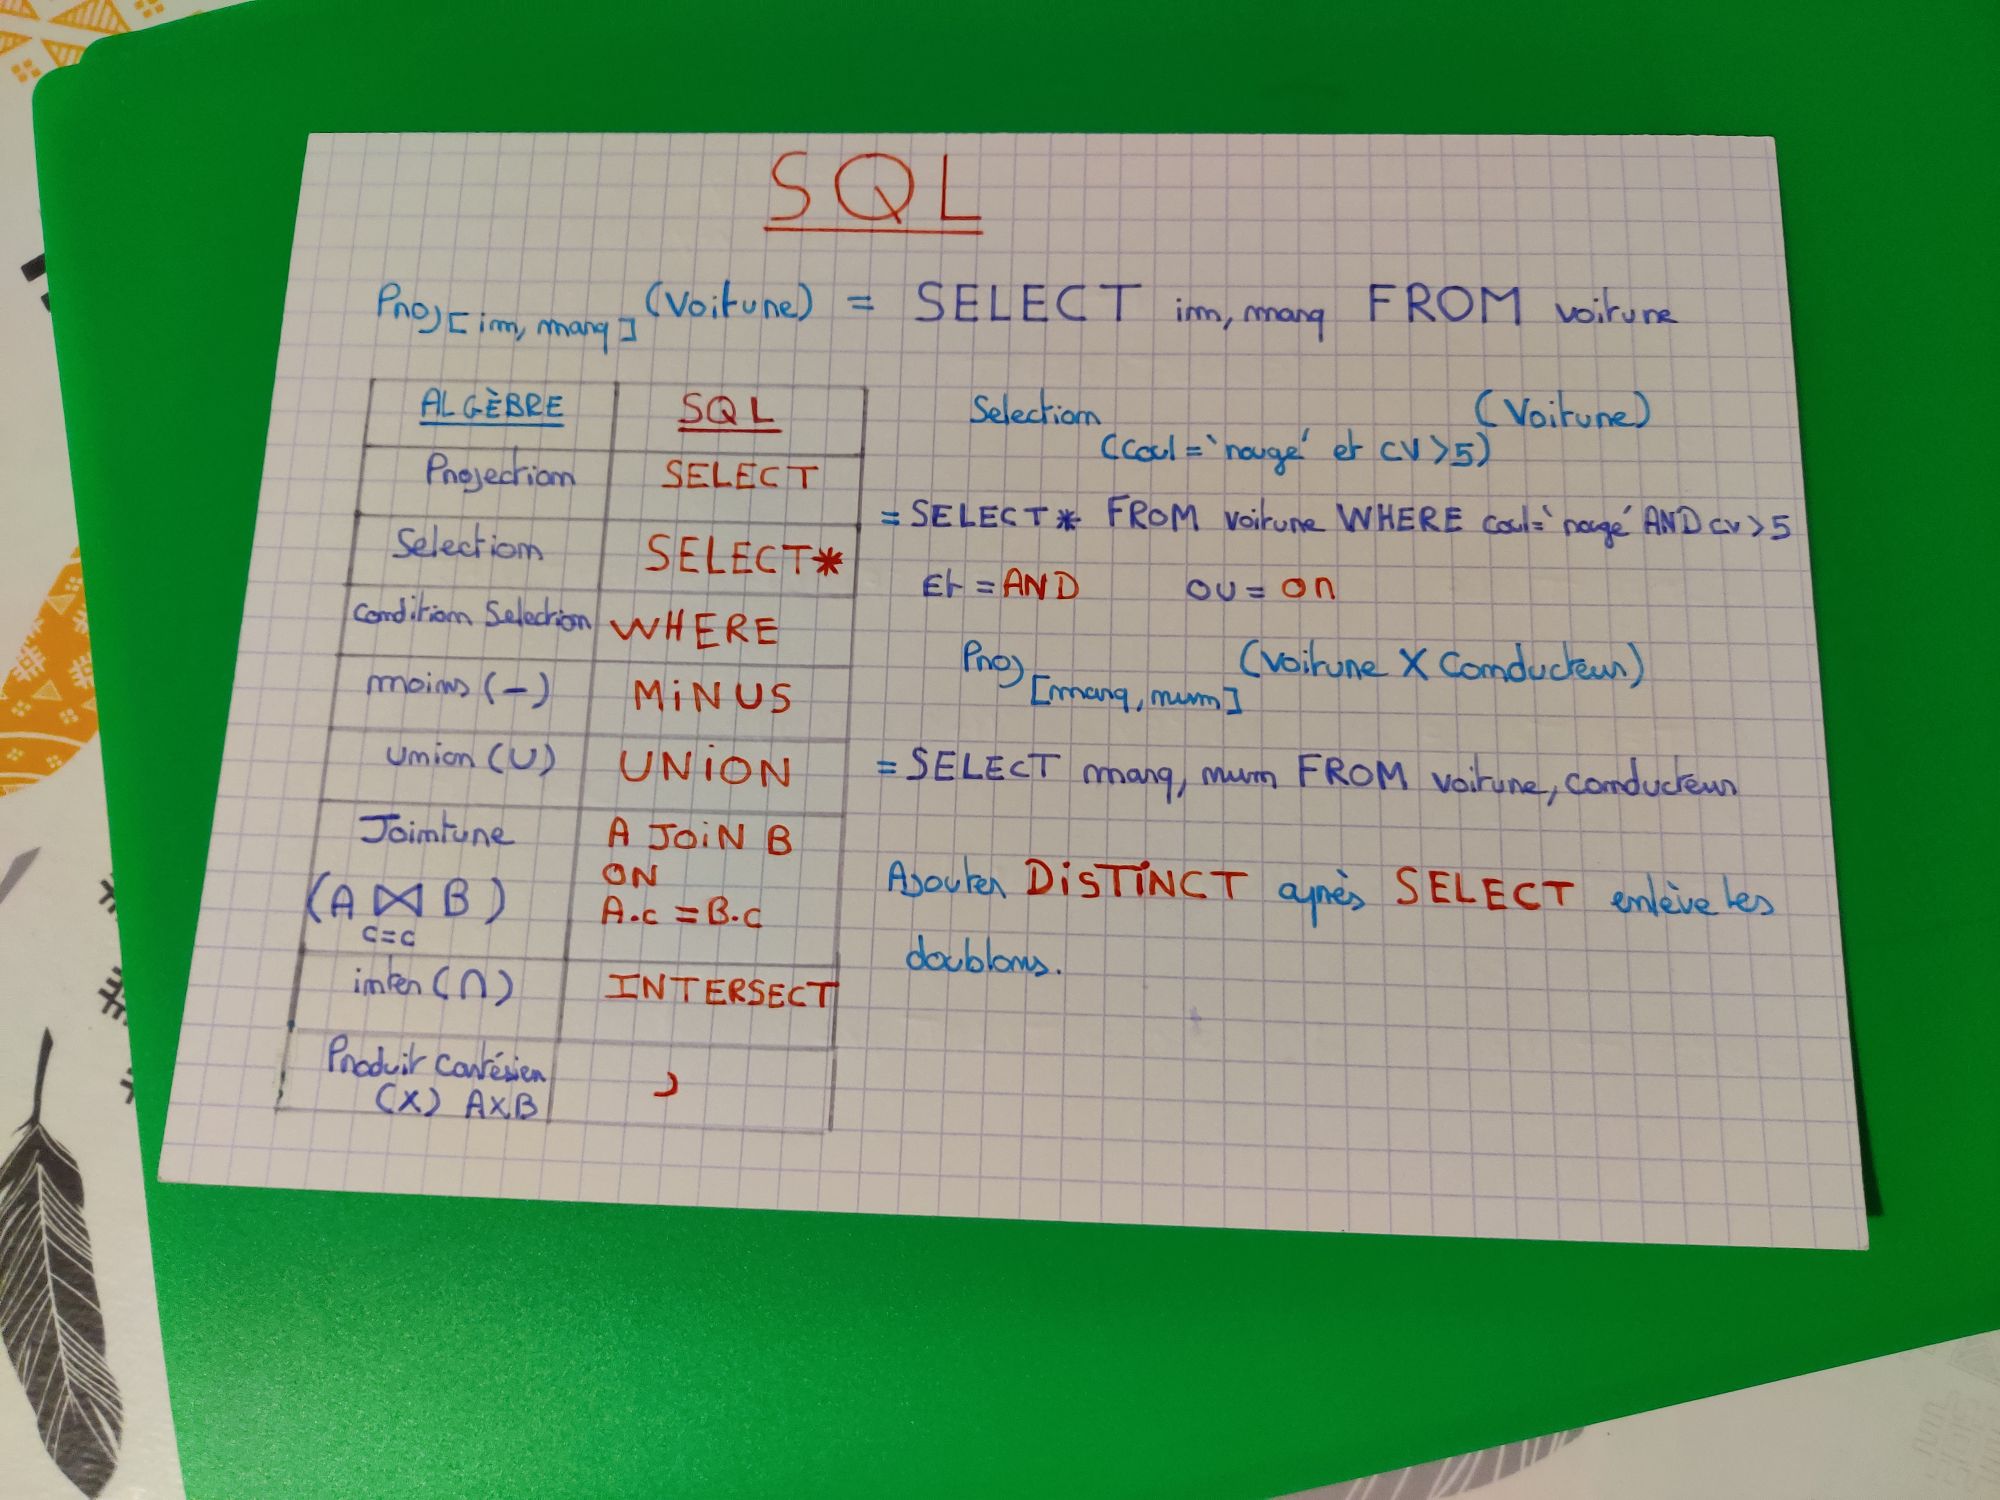 SQL
Proj[im, marq] (Voiture) = SELECT im, marq FROM voiture
ALGÈBRE SQL
Projection SELECT
Selection SELECT*
condition Selection WHERE
moins (-) MiNUS
union (U) UNiON
Jointure A JOiN B
ON
(A ⋈ B) A.c = B.c
c=c
inter (∩) INTERSECT
Produit Cartésien ,
(X) AXB
Selection (Voiture)
(Coul = 'rouge' et CV > 5)
= SELECT * FROM voiture WHERE coul = 'rouge' AND cv > 5
Et = AND OU = or
Proj (Voiture X Conducteur)
[marq, num]
= SELECT marq, num FROM voiture, conducteur
Ajouter DiSTiNCT après SELECT enlève les
doublons.